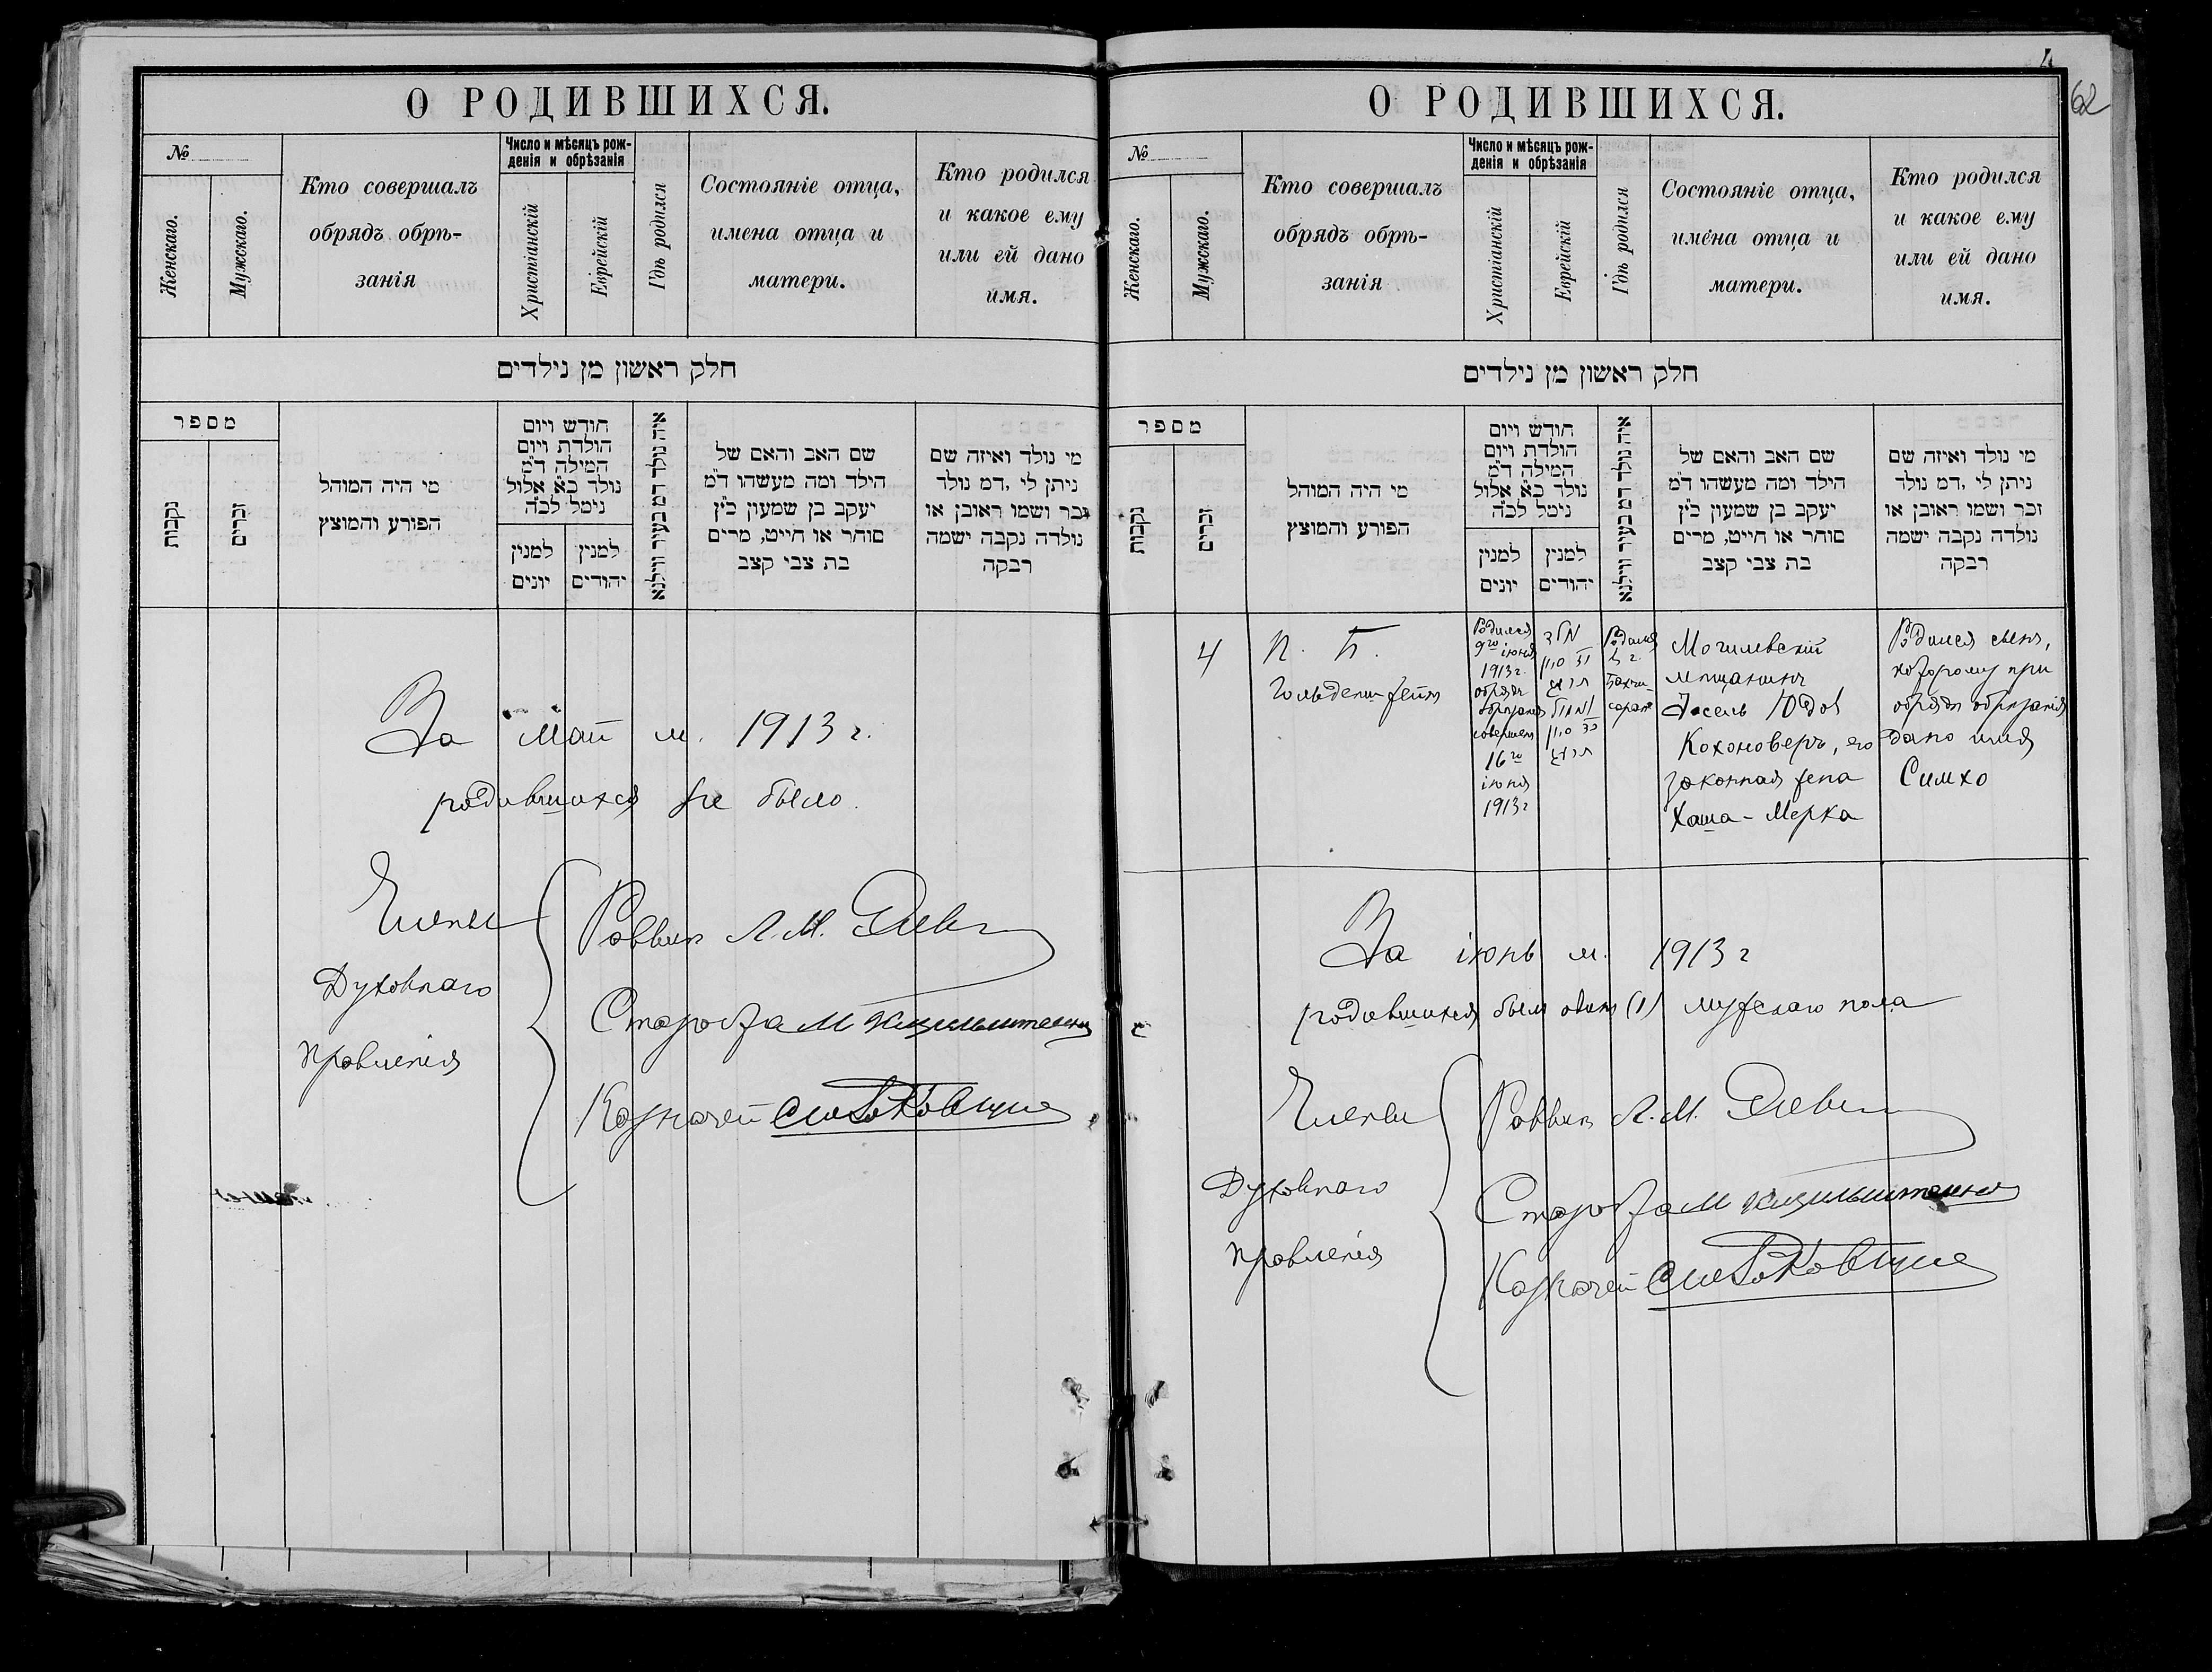 О РОДИВШИХСЯ.
№
Женскаго.
Мужскаго.
Кто совершалъ
обрядъ обрѣ-
занія
Число и мѣсяцъ рож-
денія и обрѣзанія
Христіанскій
Еврейскій
Гдѣ родился
Состояніе отца,
имена отца и
матери.
Кто родился
и какое ему
или ей дано
имя.
חלק ראשון מן נילדים
מספר
נקבות
זכרים
מי היה המוהל
הפורע והמוצץ
חודש ויום
הולדת ויום
המילה ד״מ
נולד כ״א אלול
נימל לכ״ה
למנין
יונים
למנין
יהודים
איה נולד דמ בעיר ווילנא
שם האב והאם של
הילד ומה מעשהו ד״מ
יעקב בן שמעון כ״ץ
סוחר או חייט, מרים
בת צבי קצב
מי נולד ואיזה שם
ניתן לי ,דמ נולד
זכר ושמו ראובן או
נולדה נקבה ישמה
רבקה
За май м. 1913 г.
родившихся не было.
Члены
Духовнаго
Правленія
Раввин Л. М.
Староста М
Казначей
4
62
О РОДИВШИХСЯ.
№
Женскаго.
Мужскаго.
Кто совершалъ
обрядъ обрѣ-
занія
Число и мѣсяцъ рож-
денія и обрѣзанія
Христіанскій
Еврейскій
Гдѣ родился
Состояніе отца,
имена отца и
матери.
Кто родился
и какое ему
или ей дано
имя.
חלק ראשון מן נילדים
מספר
נקבות
זכרים
מי היה המוהל
הפורע והמוצץ
חודש ויום
הולדת ויום
המילה ד״מ
נולד כ״א אלול
נימל לכ״ה
למנין
יונים
למנין
יהודים
איה נולד דמ בעיר ווילנא
שם האב והאם של
הילד ומה מעשהו ד״מ
יעקב בן שמעון כ״ץ
סוחר או חייט, מרים
בת צבי קצב
מי נולד ואיזה שם
ניתן לי ,דמ נולד
זכר ושמו ראובן או
נולדה נקבה ישמה
רבקה
4
П. Б.
Гольденштейн
Родился
9го іюня
1913 г.
обрядъ
обрѣзанія
совершен
16го
іюня
1913 г
סיון
סיון
Родился
в г.
Бахчи-
сарае
Могилевскій
мѣщанинъ
Іосель Юдов
Кохоноверъ, его
законная жена
Хаша-Мерка
Родился сынъ,
которому при
обрядѣ обрѣзанія
дано имя
Симхо
За іюнь м. 1913 г
родившихся был один (1) мужскаго пола
Члены
Духовнаго
Правленія
Раввин Л. М.
Староста М
Казначей